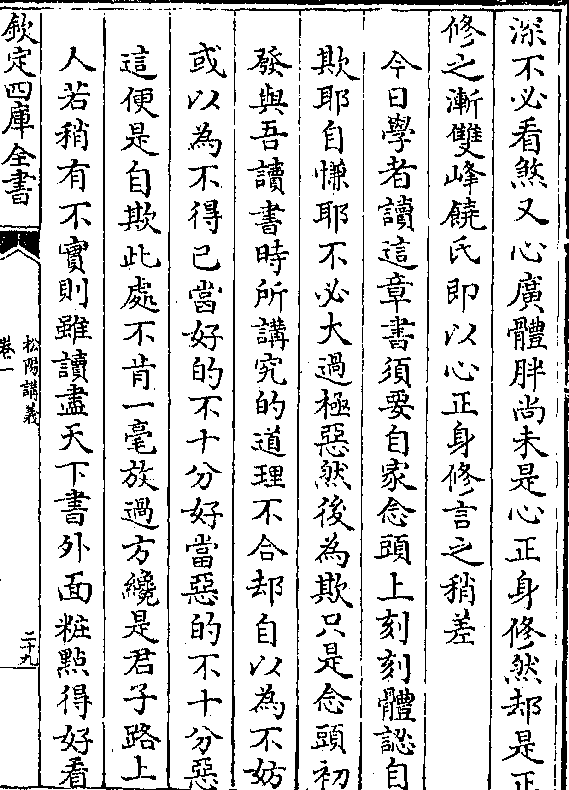 深不必看煞又心廣體胖尚未是心正身修然却是正
修之漸雙峰饒氏即以心正身修言之稍差
今日學者讀這章書須要自家念頭上刻刻體認自
欺耶自慊耶不必大過極惡然後為欺只是念頭初
發與吾讀書時所講究的道理不合却自以為不妨
或以為不得已當好的不十分好當惡的不十分惡
這便是自欺此處不肯一毫放過方纔是君子路上
人若稍有不實則雖讀盡天下書外面粧點得好看
欽定四庫全書
松陽講義
卷一
二十九